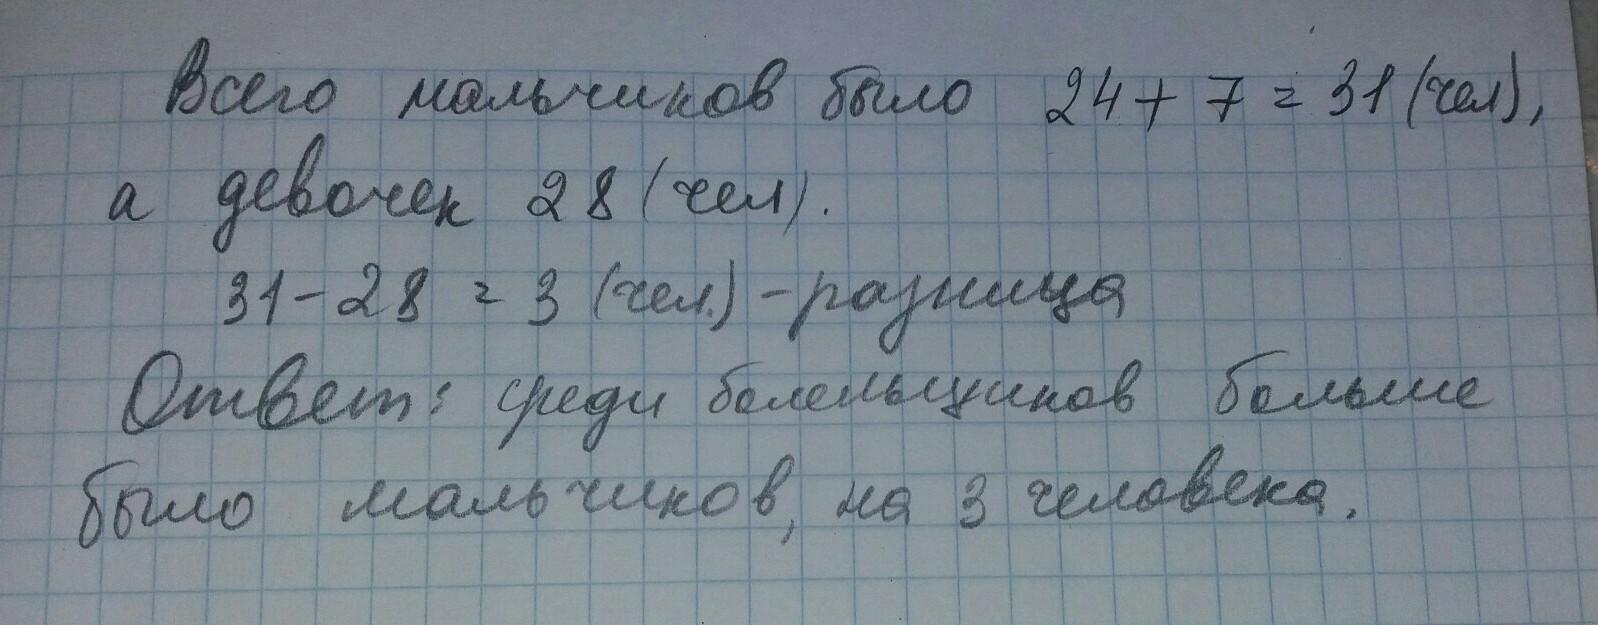 Всего мальчиков было 24 + 7 = 31 (чел),
а девочек 28 (чел).
31 - 28 = 3 (чел.) - разница
Ответ: среди болельщиков больше
было мальчиков, на 3 человека.